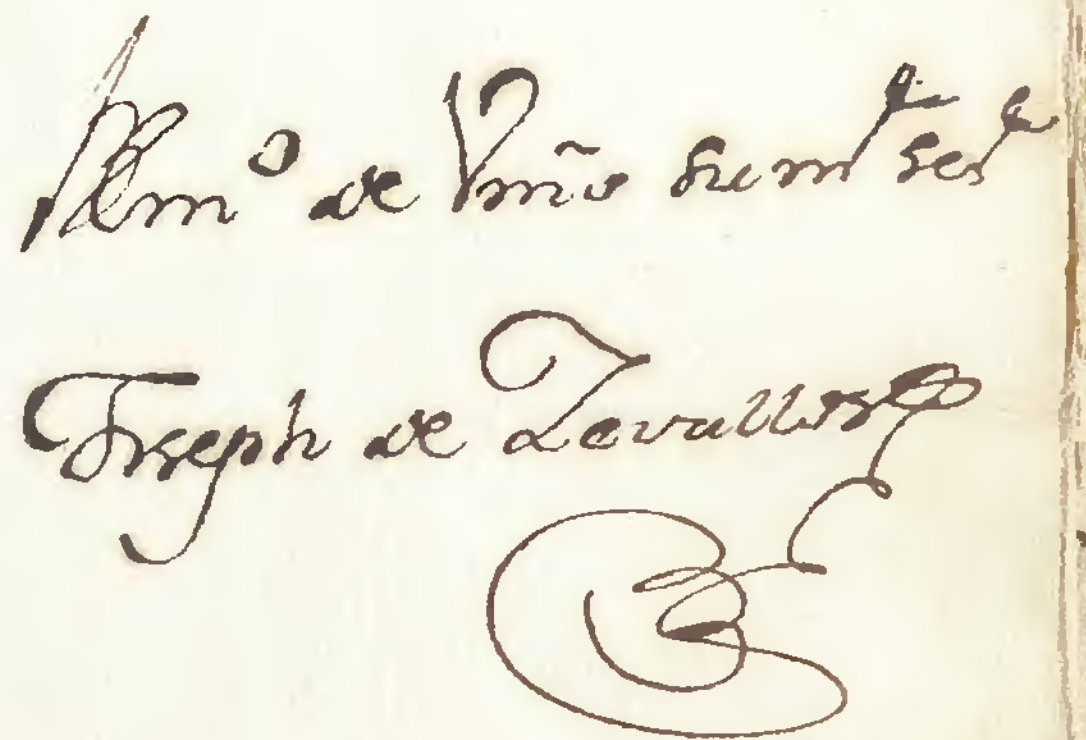 BLmº de Vmđ su mr ser
Joseph de Zevallos